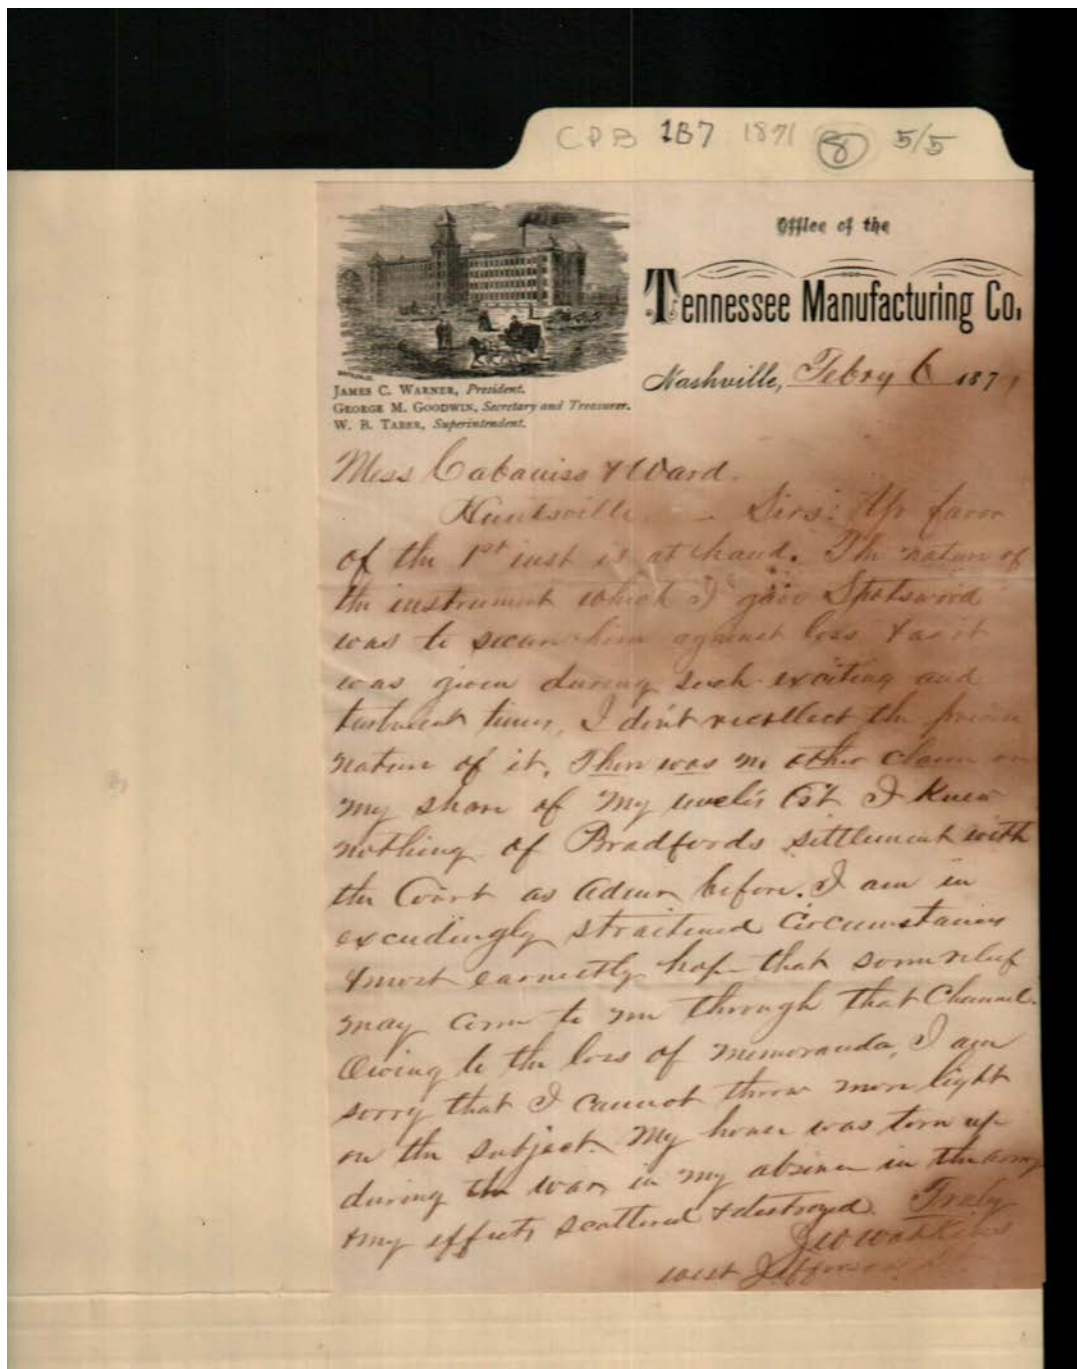 CPB 1B7 1871 8 5/5
Office of the
Tennessee Manufacturing Co.
Nashville, Febry 6 1871
JAMES C. WARNER, President.
GEORGE M. GOODWIN, Secretary and Treasurer.
W. B. TABER, Superintendent.
Mess Cabaniss & Ward.
Huntsville. – Sirs: Yr favor
of the 1st inst is at hand. The nature of
the instrument which I gave Spotswood
was to secure him against loss & as it
was given during such exciting and
turbulent times, I don't recollect the precise
nature of it. There was no other claim on
my share of my uncle's Est. I knew
nothing of Bradfords settlement with
the Court as Admr before. I am in
exceedingly straitened Circumstances
& most earnestly hope that some relief
may come to me through that Channel.
Owing to the loss of memoranda, I am
sorry that I cannot throw more light
on the subject. My house was torn up
during the war, in my absence in the army
& my effects scattered & destroyed. Truly
Jno Watkins
West Jefferson